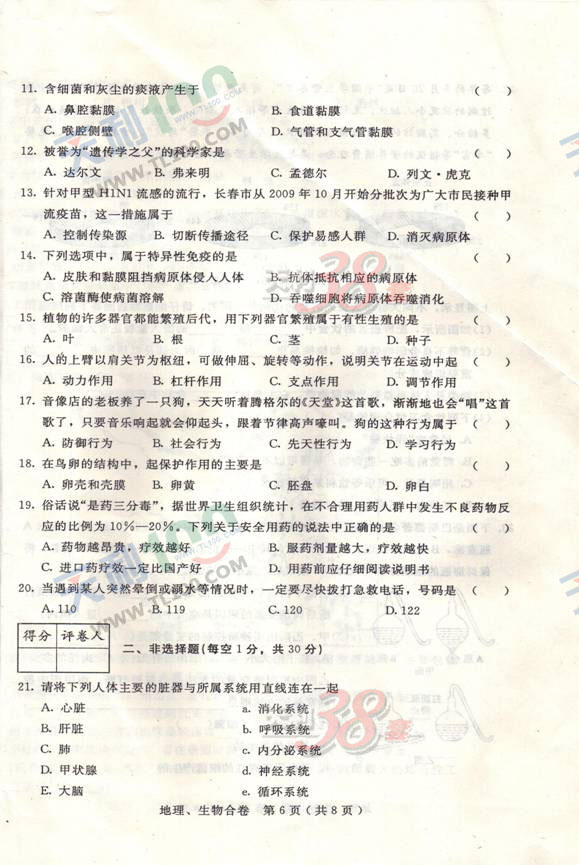 11. 含细菌和灰尘的痰液产生于 ( )
A. 鼻腔黏膜 B. 食道黏膜
C. 喉腔侧壁 D. 气管和支气管黏膜
12. 被誉为“遗传学之父”的科学家是 ( )
A. 达尔文 B. 弗来明 C. 孟德尔 D. 列文·虎克
13. 针对甲型 H1N1 流感的流行，长春市从 2009 年 10 月开始分批次为广大市民接种甲
流疫苗，这一措施属于 ( )
A. 控制传染源 B. 切断传播途径 C. 保护易感人群 D. 消灭病原体
14. 下列选项中，属于特异性免疫的是 ( )
A. 皮肤和黏膜阻挡病原体侵入人体 B. 抗体抵抗相应的病原体
C. 溶菌酶使病菌溶解 D. 吞噬细胞将病原体吞噬消化
15. 植物的许多器官都能繁殖后代，用下列器官繁殖属于有性生殖的是 ( )
A. 叶 B. 根 C. 茎 D. 种子
16. 人的上臂以肩关节为枢纽，可做伸屈、旋转等动作，说明关节在运动中起 ( )
A. 动力作用 B. 杠杆作用 C. 支点作用 D. 调节作用
17. 音像店的老板养了一只狗，天天听着腾格尔的《天堂》这首歌，渐渐地也会“唱”这首
歌了，只要音乐响起就会仰起头，跟着节律高声嚎叫。狗的这种行为属于 ( )
A. 防御行为 B. 社会行为 C. 先天性行为 D. 学习行为
18. 在鸟卵的结构中，起保护作用的主要是 ( )
A. 卵壳和壳膜 B. 卵黄 C. 胚盘 D. 卵白
19. 俗话说“是药三分毒”，据世界卫生组织统计，在不合理用药人群中发生不良药物反
应的比例为 10%—20%。下列关于安全用药的说法中正确的是 ( )
A. 药物越昂贵，疗效越好 B. 服药剂量越大，疗效越快
C. 进口药疗效一定比国产好 D. 用药前应仔细阅读说明书
20. 当遇到某人突然晕倒或溺水等情况时，一定要尽快拨打急救电话，号码是 ( )
A. 110 B. 119 C. 120 D. 122
得分 评卷人
二、非选择题(每空 1 分，共 30 分)
21. 请将下列人体主要的脏器与所属系统用直线连在一起
A. 心脏 a. 消化系统
B. 肝脏 b. 呼吸系统
C. 肺 c. 内分泌系统
D. 甲状腺 d. 神经系统
E. 大脑 e. 循环系统
地理、生物合卷 第 6 页(共 8 页)
天利100
WWW.TL100.COM
天利38套